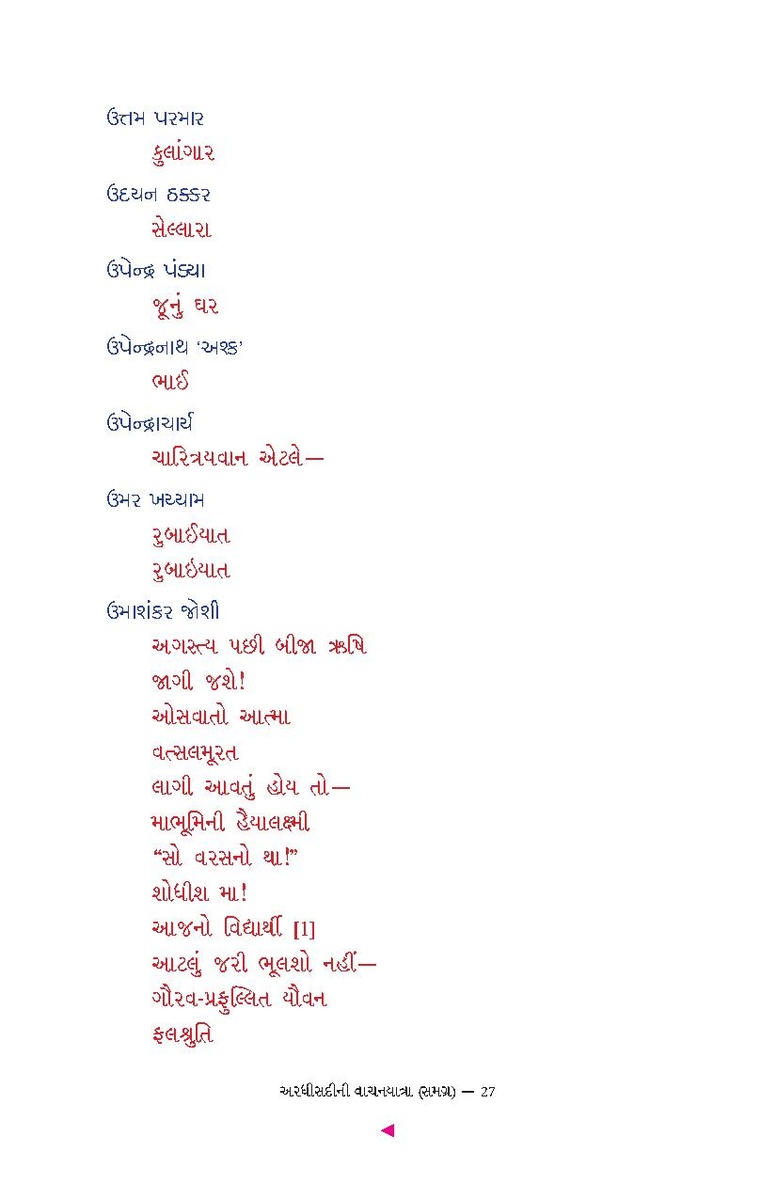 ઉત્તમ પરમાર
કુલાંગાર
ઉદયન ઠક્કર
સેલ્લારા
ઉપેન્દ્ર પંડ્યા
જૂનું ઘર
ઉપેન્દ્રનાથ ‘અશ્ક’
ભાઈ
ઉપેન્દ્રાચાર્ય
ચારિત્રયવાન એટલે—
ઉમર ખય્યામ
રુબાઈયાત
રુબાઇયાત
ઉમાશંકર જોશી
અગસ્ત્ય પછી બીજા ઋષિ
જાગી જશે!
ઓસવાતો આત્મા
વત્સલમૂરત
લાગી આવતું હોય તો—
માભૂમિની હૈયાલક્ષ્મી
“સો વરસનો થા!”
શોધીશ મા!
આજનો વિદ્યાર્થી [1]
આટલું જરી ભૂલશો નહીં—
ગૌરવ-પ્રફુલ્લિત યૌવન
ફલશ્રુતિ
અરધીસદીની વાચનયાત્રા (સમગ્ર) — 27